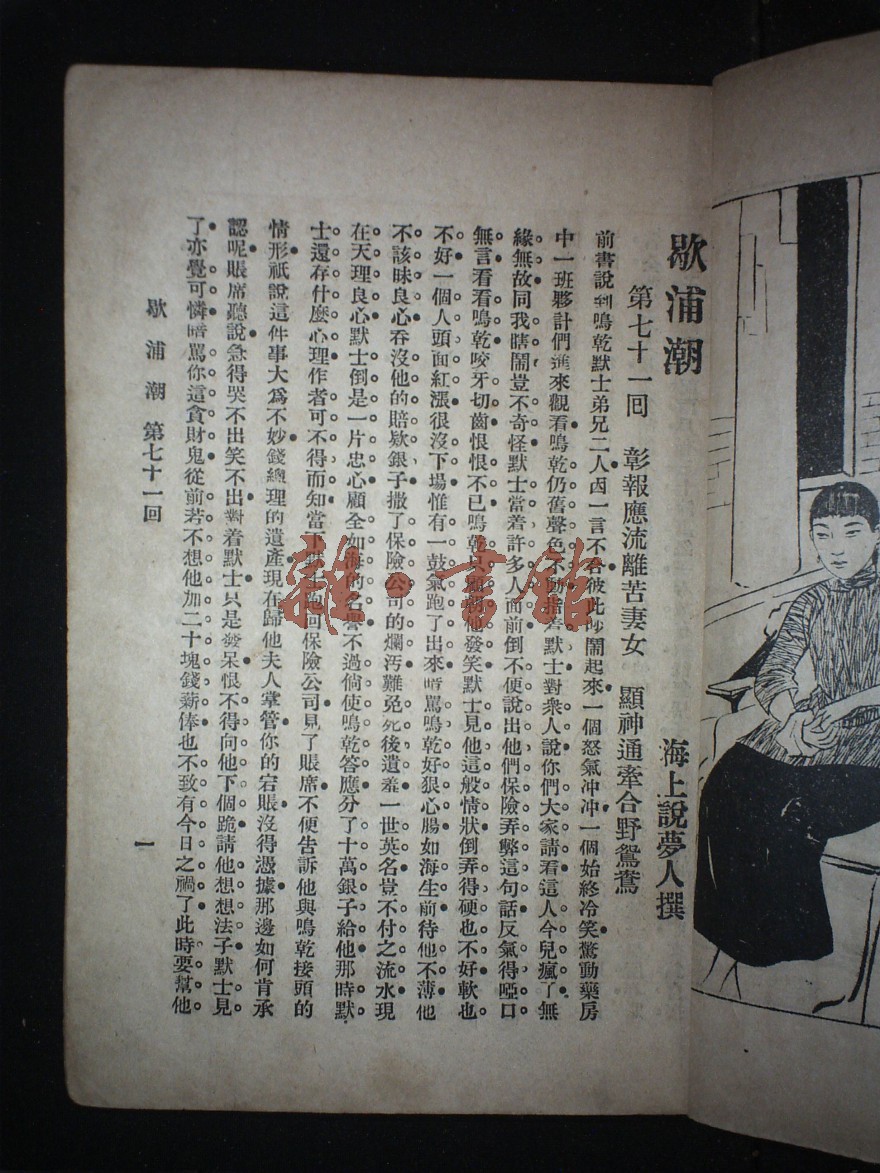 歇浦潮
海上說夢人撰
第七十一回 彰報應流離苦妻女 顯神通牽合野鴛鴦
前書說到鳴乾默士弟兄二人因一言不合彼此吵鬧起來一個怒氣冲冲一個始終冷笑驚動藥房
中一班夥計們進來觀看鳴乾仍舊聲色不動指着默士對衆人說你們大家請看這人今兒瘋了無
緣無故同我瞎鬧豈不奇怪默士當着許多人面前倒不便說出他們保險弄弊這句話反氣得啞口
無言看看鳴乾咬牙切齒恨恨不已鳴乾只顧朝他發笑默士見他這般情狀倒弄得硬也不好軟也
不好一個人頭面紅漲很沒下場惟有一鼓氣跑了出來暗罵鳴乾好狠心腸如海生前待他不薄他
不該昧良心吞沒他的賠欵銀子撒了保險公司的爛汚難免死後遺羞一世英名豈不付之流水現
在天理良心默士倒是一片忠心顧全如海的名譽不過倘使鳴乾答應分了十萬銀子給他那時默
士還存什麼心理作者可不得而知當下默士跑回保險公司見了賬席不便告訴他與鳴乾接頭的
情形祇說這件事大爲不妙錢總理的遺產現在歸他夫人掌管你的宕賬沒得憑據那邊如何肯承
認呢賬席聽說急得哭不出笑不出對着默士只是發呆恨不得向他下個跪請他想想法子默士見
了亦覺可憐暗罵你這貪財鬼從前若不想他加二十塊錢薪俸也不致有今日之禍了此時要幫他
歇浦潮 第七十一回
一
雜·書館